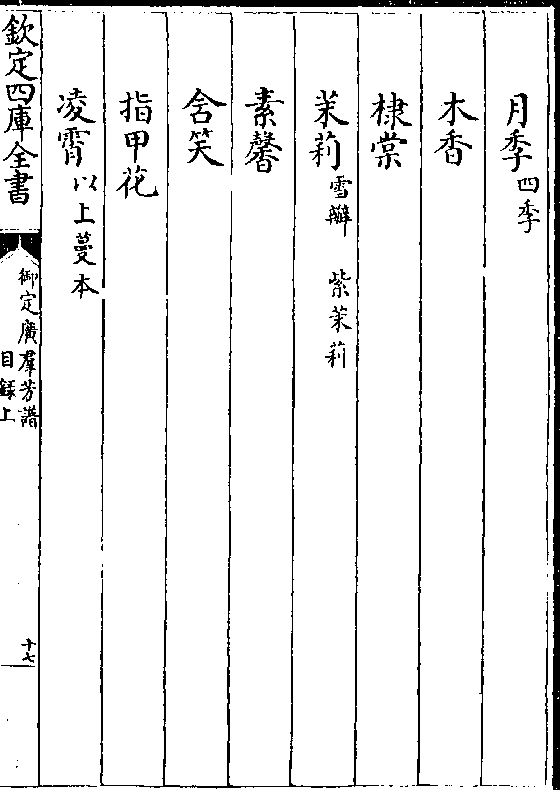 月季四季
木香
棣棠
茉莉雪瓣　紫茉莉
素馨
含笑
指甲花
凌霄以上蔓本
欽定四庫全書
御定廣羣芳譜
目錄上
十七